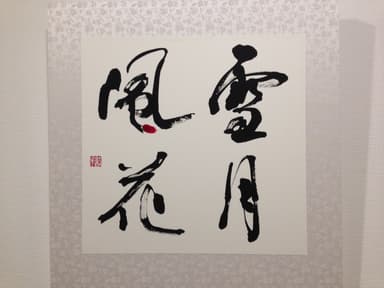 雪月
風花